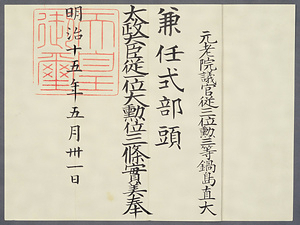 元老院議官從三位勳三等鍋島直大
兼任式部頭
太政大臣從一位大勳位三條實美奉
明治十五年五月卅一日
天皇御璽